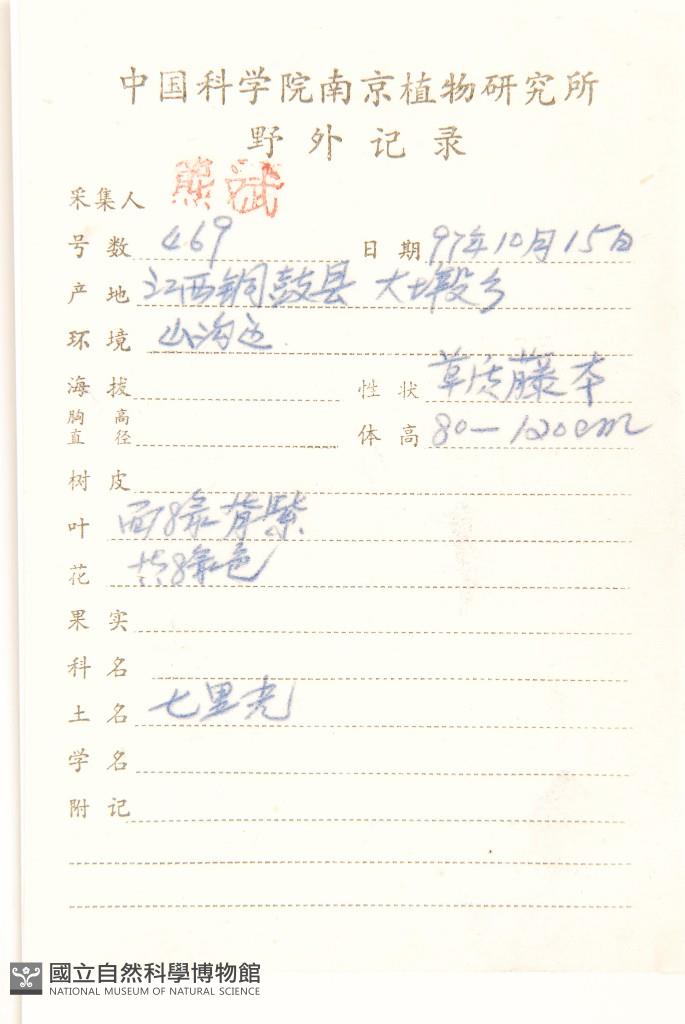 中国科学院南京植物研究所
野外记录
采集人 熊
号数 469 日期 97年10月15日
产地 江西铜鼓县 大塅段乡
环境 山沟边
海拔 性状 草质藤本
胸高直径 体高 80—120cm
树皮
叶 面绿背紫
花 黄绿色
果实
科名
土名 七里光
学名
附记
國立自然科學博物館
NATIONAL MUSEUM OF NATURAL SCIENCE